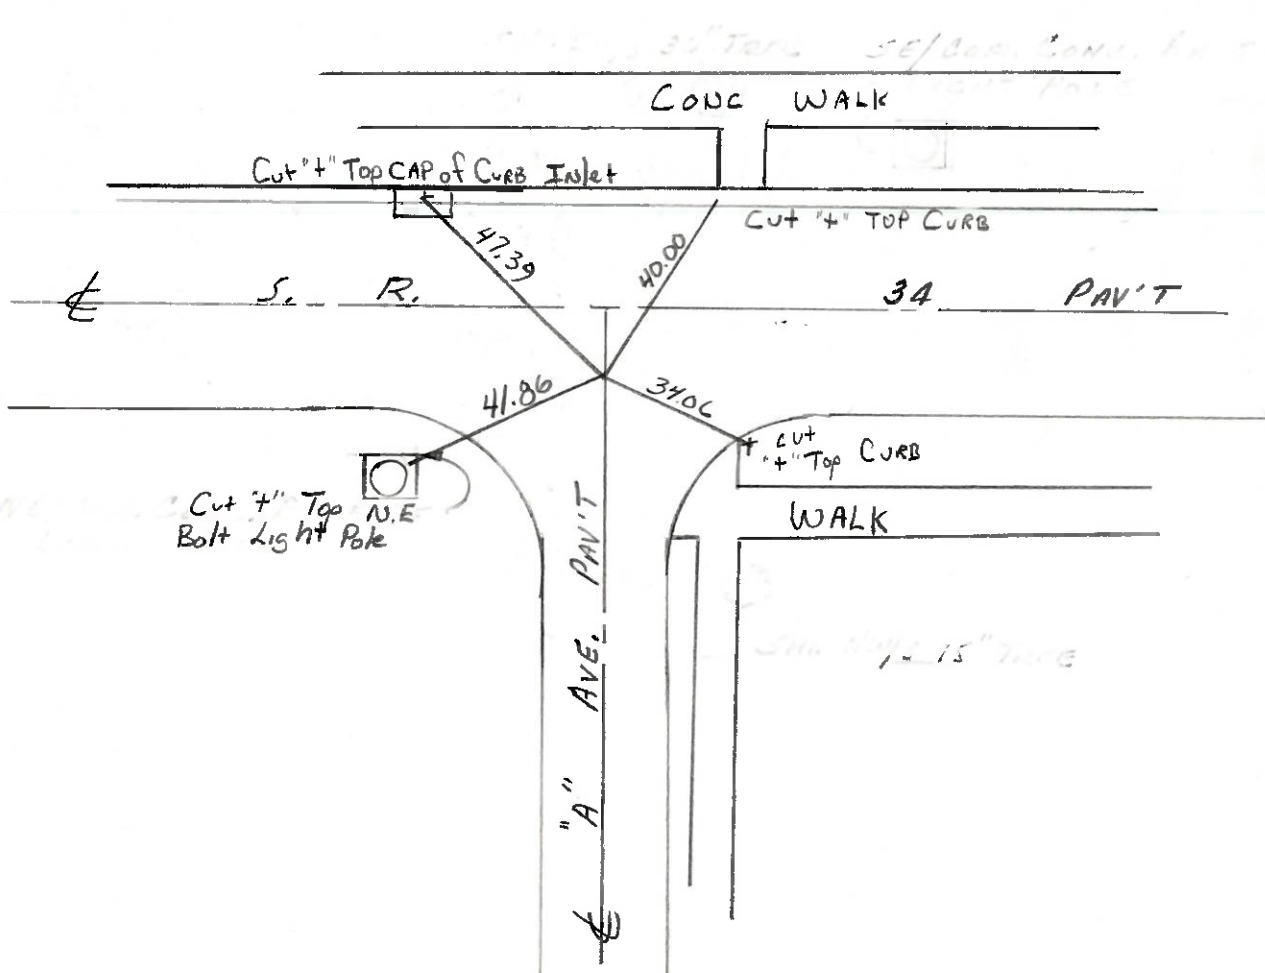 CONC WALK
Cut "+" Top CAP of CURB Inlet
Cut "+" TOP CURB
47.39
40.00
℄ S. R. 34 PAV'T
41.86
34.06
+ cut
"+" Top CURB
Cut "+" Top N.E
Bolt Light Pole
WALK
℄ "A" AVE. PAV'T
15" TREE